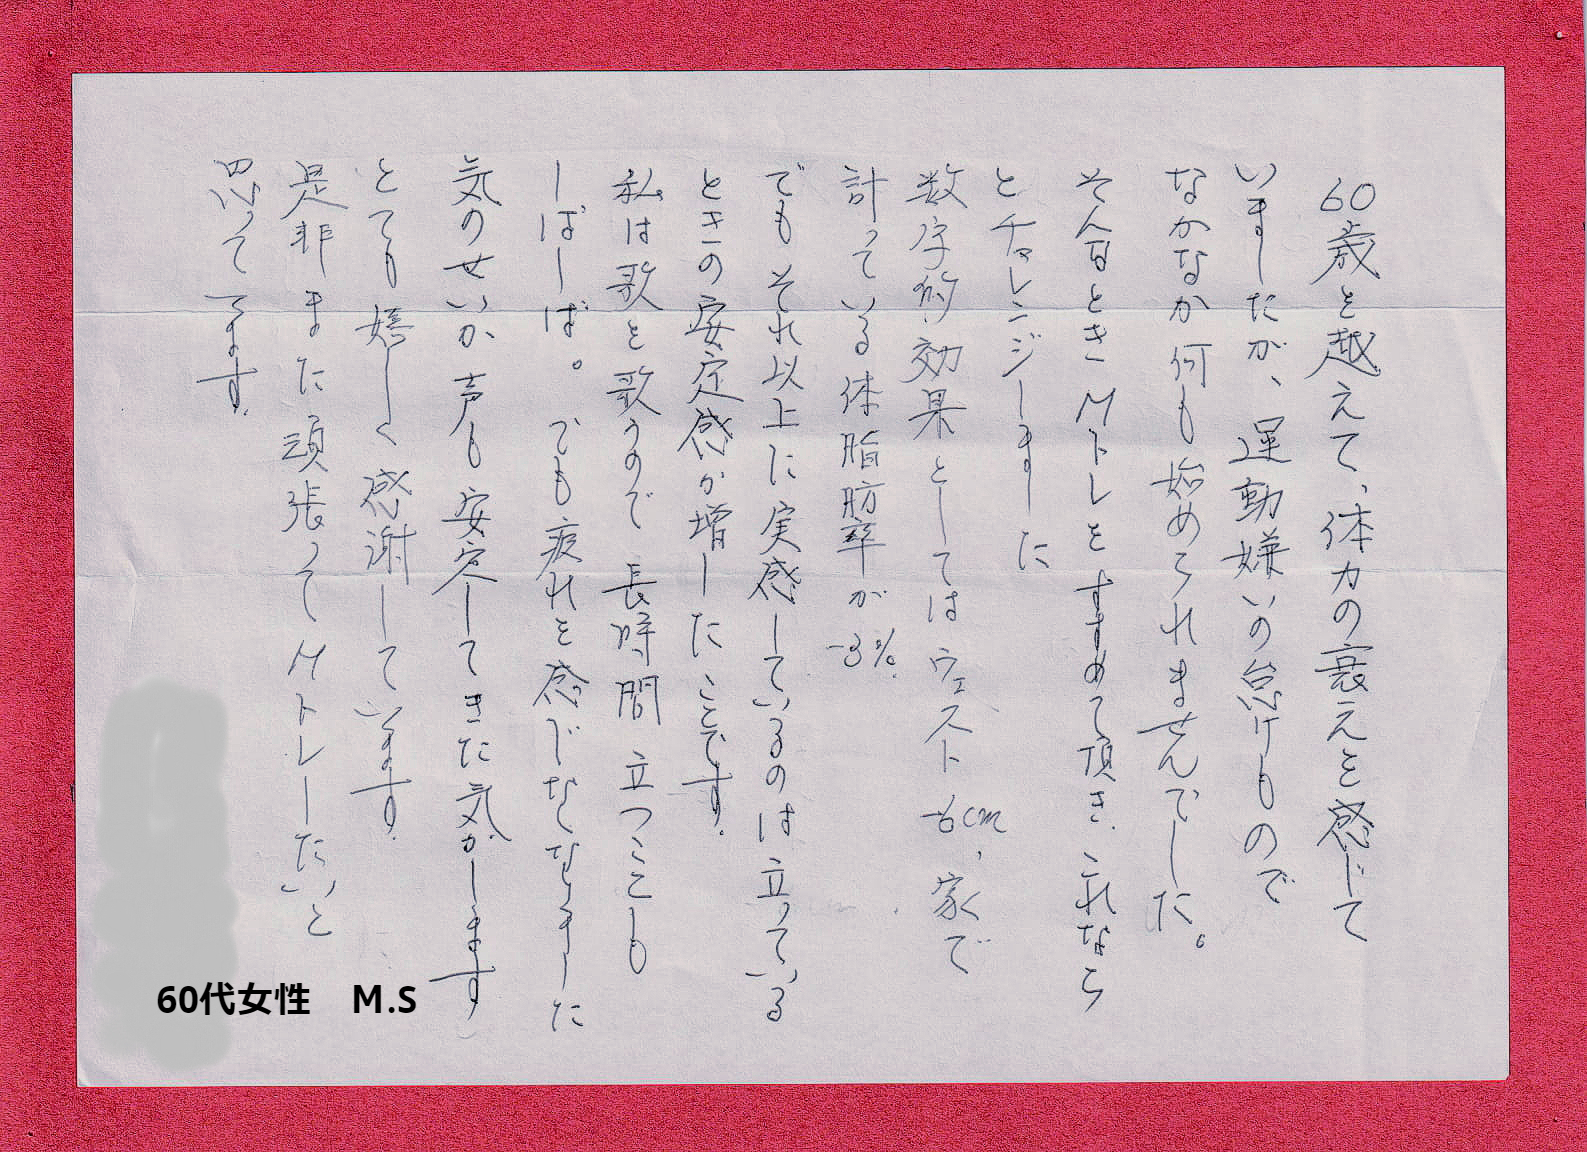 60歳を越えて、体力の衰えを感じて
いましたが、運動嫌いの怠けもので
なかなか何も始められませんでした。
そんなときMトレをすすめて頂き、これなら
とチャレンジしました
数字的効果としてはウェスト-6cm、家で
計っている体脂肪率が-3%.
でもそれ以上に実感しているのは立っている
ときの安定感が増したことです.
私は歌を歌うので長時間立つことも
しばしば。でも疲れを感じなくなりました
気のせいか声も安定してきた気がします
とても嬉しく感謝しています.
是非また頑張ってMトレしたいと
思ってます.
60代女性 M.S